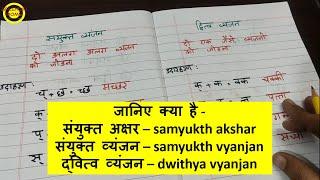 संयुक्त व्यंजन
दो अलग अलग व्यंजन
को जोड़ना
उदाहरण:
च् + छ = च्छ मच्छर
द्वित्व व्यंजन
दो एक जैसे व्यंजनो
को जोड़ना
उदाहरण:
क् + क = क्क चक्की
पत्ता
जानिए क्या है -
संयुक्त अक्षर – samyukth akshar
संयुक्त व्यंजन – samyukth vyanjan
द्वित्व व्यंजन – dwithya vyanjan